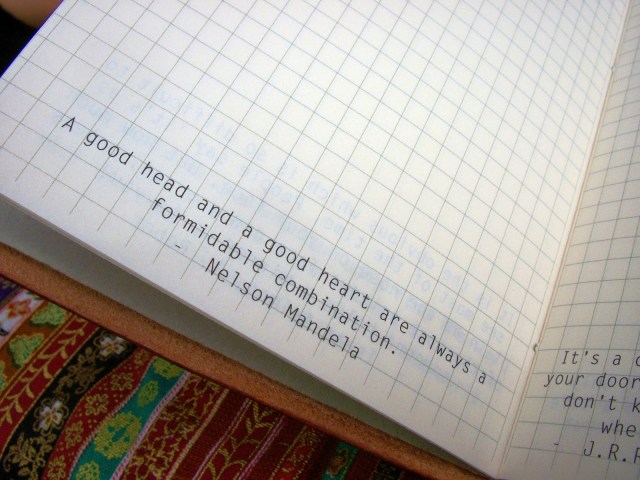 A good head and a good heart are always a
formidable combination.
- Nelson Mandela
It's a
your door
don't
- J.R.